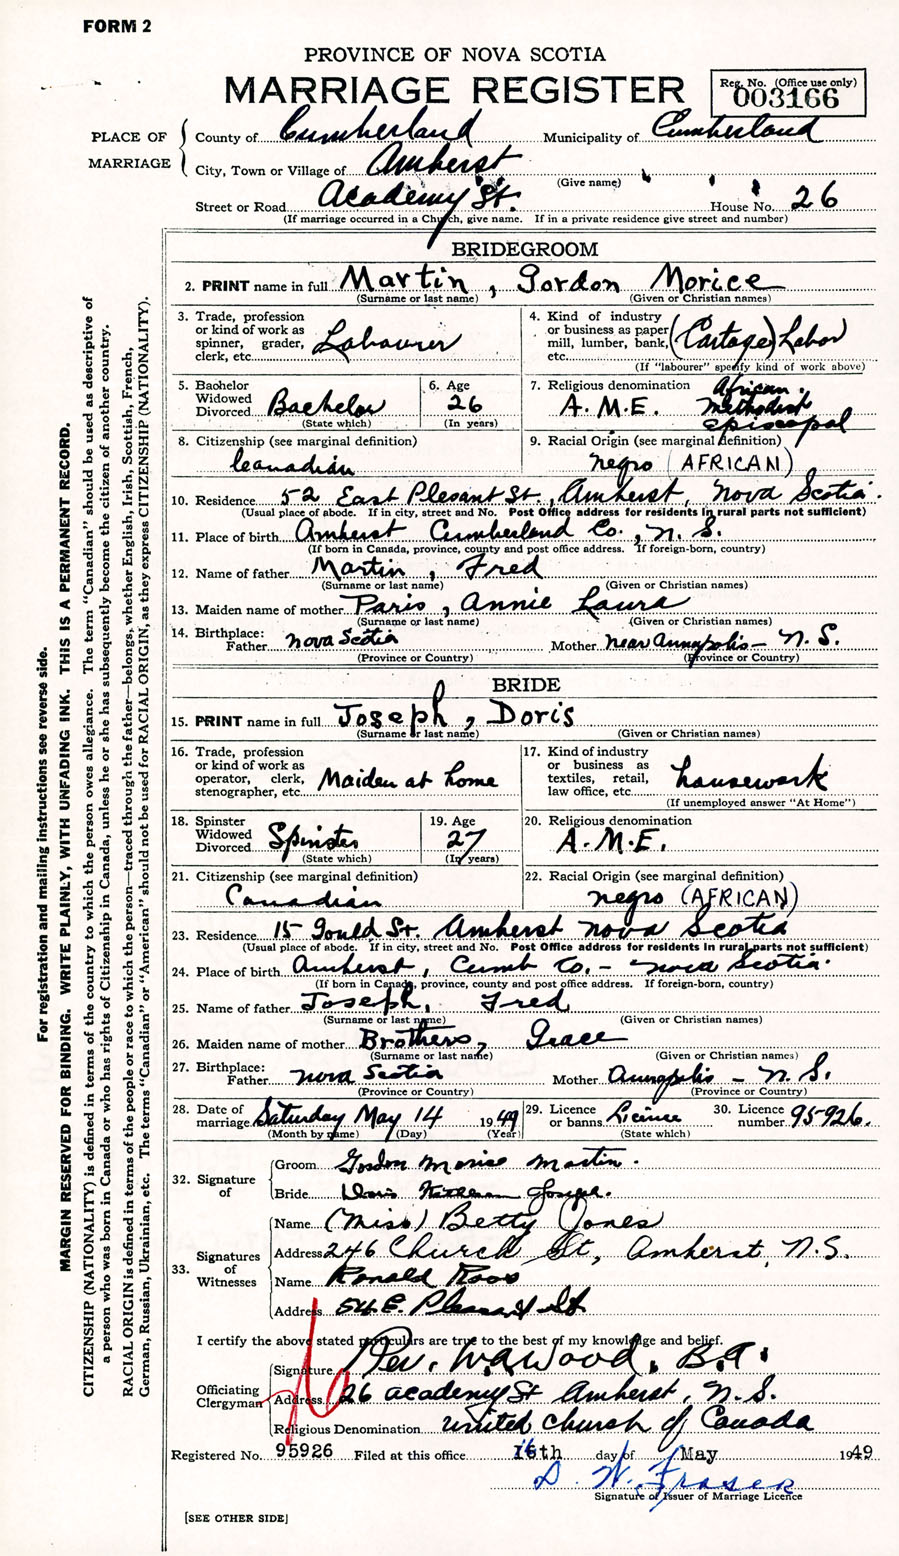 FORM 2
PROVINCE OF NOVA SCOTIA
MARRIAGE REGISTER
Reg. No. (Office use only)
003166
PLACE OF MARRIAGE
County of Cumberland Municipality of Cumberland
City, Town or Village of Amherst
(Give name)
Street or Road Academy St. House No. 26
(If marriage occurred in a Church, give name. If in a private residence give street and number)
BRIDEGROOM
2. PRINT name in full Martin, Gordon Morice
(Surname or last name) (Given or Christian names)
3. Trade, profession or kind of work as spinner, grader, clerk, etc. Labourer
4. Kind of industry or business as paper mill, lumber, bank, etc. (Cartage) Labor
(If "labourer" specify kind of work above)
5. Bachelor Widowed Divorced Bachelor
(State which)
6. Age 26
(In years)
7. Religious denomination African Methodist Episcopal
A.M.E.
8. Citizenship (see marginal definition)
Canadian
9. Racial Origin (see marginal definition)
negro (AFRICAN)
10. Residence 52 East Plesant St., Amherst, Nova Scotia.
(Usual place of abode. If in city, street and No. Post Office address for residents in rural parts not sufficient)
11. Place of birth Amherst Cumberland Co., N.S.
(If born in Canada, province, county and post office address. If foreign-born, country)
12. Name of father Martin, Fred
(Surname or last name) (Given or Christian names)
13. Maiden name of mother Paris, Annie Laura
(Surname or last name) (Given or Christian names)
14. Birthplace: Father Nova Scotia Mother near Annapolis - N.S.
(Province or Country) (Province or Country)
BRIDE
15. PRINT name in full Joseph, Doris
(Surname or last name) (Given or Christian names)
16. Trade, profession or kind of work as operator, clerk, stenographer, etc. Maiden at home
17. Kind of industry or business as textiles, retail, law office, etc. housework
(If unemployed answer "At Home")
18. Spinster Widowed Divorced Spinster
(State which)
19. Age 27
(In years)
20. Religious denomination
A.M.E.
21. Citizenship (see marginal definition)
Canadian
22. Racial Origin (see marginal definition)
negro (AFRICAN)
23. Residence 15 Gould St. Amherst Nova Scotia
(Usual place of abode. If in city, street and No. Post Office address for residents in rural parts not sufficient)
24. Place of birth Amherst, Cumb Co. - Nova Scotia.
(If born in Canada, province, county and post office address. If foreign-born, country)
25. Name of father Joseph, Fred
(Surname or last name) (Given or Christian names)
26. Maiden name of mother Brothers, Grace
(Surname or last name) (Given or Christian names)
27. Birthplace: Father Nova Scotia Mother Annapolis - N.S.
(Province or Country) (Province or Country)
28. Date of marriage Saturday May 14 1949
(Month by name) (Day) (Year)
29. Licence or banns Licence
(State which)
30. Licence number 95-926.
32. Signature of
Groom Gordon Morise Martin.
Bride Doris Joseph.
33. Signatures of Witnesses
Name (Miss) Betty Jones
Address 246 Church St, Amherst, N.S.
Name Ronald
Address 54 E. Pleasant St
I certify the above stated particulars are true to the best of my knowledge and belief.
Officiating Clergyman
Signature Rev. W.A. Wood, B.A.
Address 26 Academy St Amherst, N.S.
Religious Denomination United Church of Canada
Registered No. 95926 Filed at this office 16th day of May 1949
D. W. Fraser
Signature of Issuer of Marriage Licence
[SEE OTHER SIDE]
For registration and mailing instructions see reverse side.
MARGIN RESERVED FOR BINDING. WRITE PLAINLY, WITH UNFADING INK. THIS IS A PERMANENT RECORD.
CITIZENSHIP (NATIONALITY) is defined in terms of the country to which the person owes allegiance. The term "Canadian" should be used as descriptive of
a person who was born in Canada or who has rights of Citizenship in Canada, unless he or she has subsequently become the citizen of another country.
RACIAL ORIGIN is defined in terms of the people or race to which the person—traced through the father—belongs, whether English, Irish, Scottish, French,
German, Russian, Ukrainian, etc. The terms "Canadian" or "American" should not be used for RACIAL ORIGIN, as they express CITIZENSHIP (NATIONALITY).